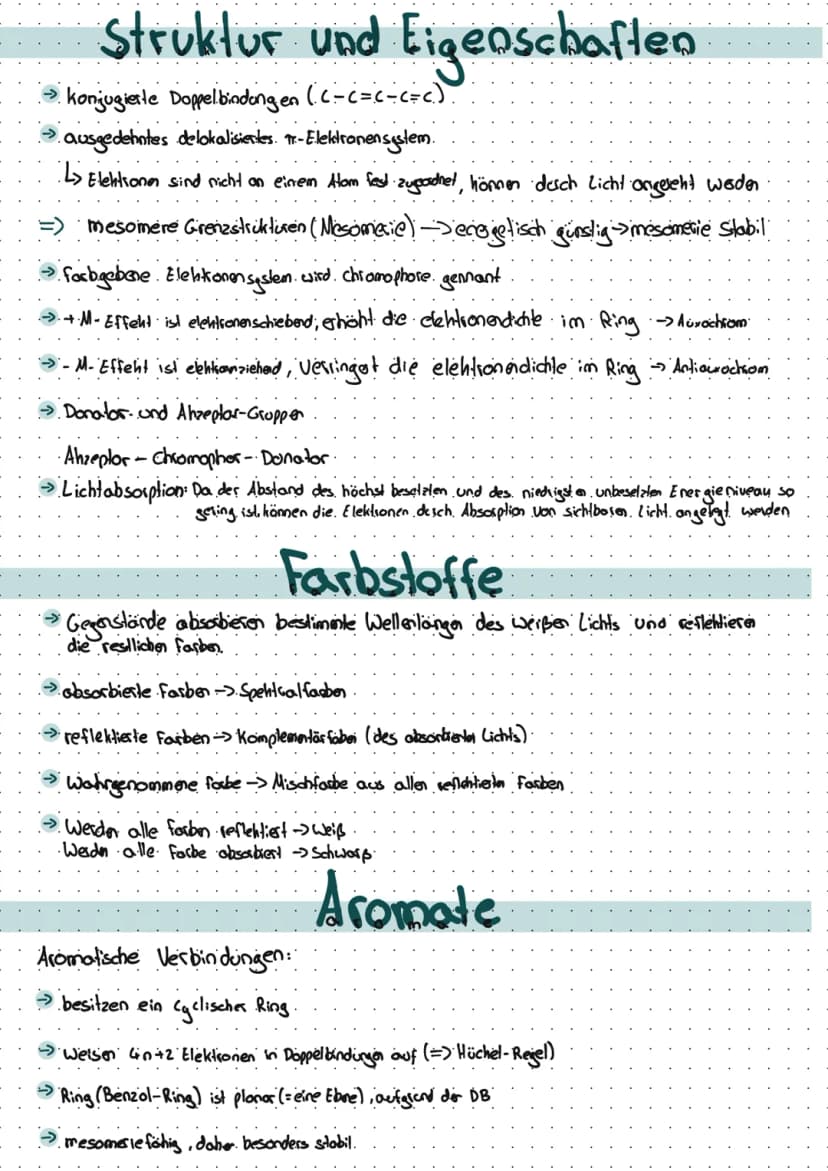 Struktur und Eigenschaften
→ konjugierte Doppelbindungen (C-C=C-C=C)
→ ausgedehntes delokalisiertes π-Elektronensystem.
↳ Elektronen sind nicht an einem Atom fest zugeordnet, können durch Licht angeregt werden
=> mesomere Grenzstrukturen (Mesomerie) → energetisch günstig → mesomerie stabil
→ farbgebene Elektronensystem wird chromophore gennant
→ + M-Effekt ist elektronenschiebend, erhöht die elektronendichte im Ring → Auxochrom
→ - M-Effekt ist elektronziehend, verringert die elektronendichte im Ring → Antiauxochrom
→ Donator- und Akzeptor-Gruppen
Akzeptor - Chromophor - Donator
→ Lichtabsorption: Da der Abstand des höchst besetzten und des niedrigsten unbesetzten Energieniveau so
gering ist, können die Elektronen durch Absorption von sichtbaren Licht angeregt werden
Farbstoffe
→ Gegenstände absorbieren bestimmte Wellenlängen des weißen Lichts und reflektieren
die restlichen Farben.
→ absorbierte Farben → Spektralfarben
→ reflektierte Farben → Komplementärfarben (des absorbierten Lichts)
→ Wahrgenommene Farbe → Mischfarbe aus allen reflektierten Farben
→ Werden alle Farben reflektiert → Weiß
Werden alle Farbe absorbiert → Schwarz
Aromate
Aromatische Verbindungen:
→ besitzen ein cyclischer Ring
→ weisen 4n+2 Elektronen in Doppelbindungen auf (=> Hückel-Regel)
→ Ring (Benzol-Ring) ist planar (= eine Ebne), aufgrund der DB
→ mesomeriefähig, daher besonders stabil.